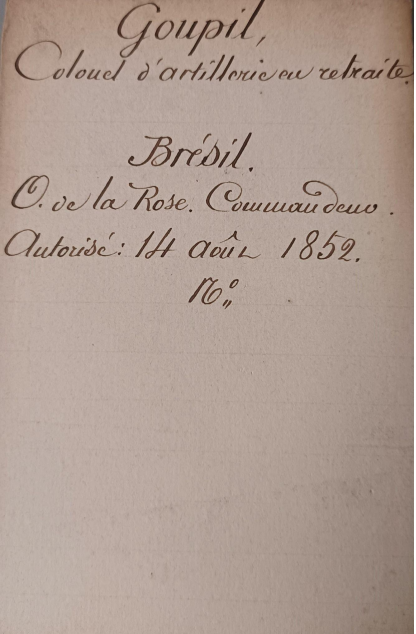 Goupil,
Colonel d'artillerie en retraite.
Brésil.
O. de la Rose. Commandeur.
Autorisé: 14 août 1852.
N° „